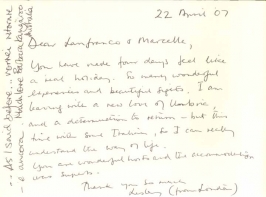 22 April '07
Dear Lanfranco & Marcella,
You have made four days feel like
a real holiday. So many wonderful
experiences and beautiful sights. I am
leaving with a new love of Umbria,
and a determination to return - but this
time with some Italian, so I can really
understand the way of life.
You are wonderful hosts and the accommodation
was superb.
Thank you so much
(from London)
... As I said before .. vorrei ritornare
... e ancora
Australia